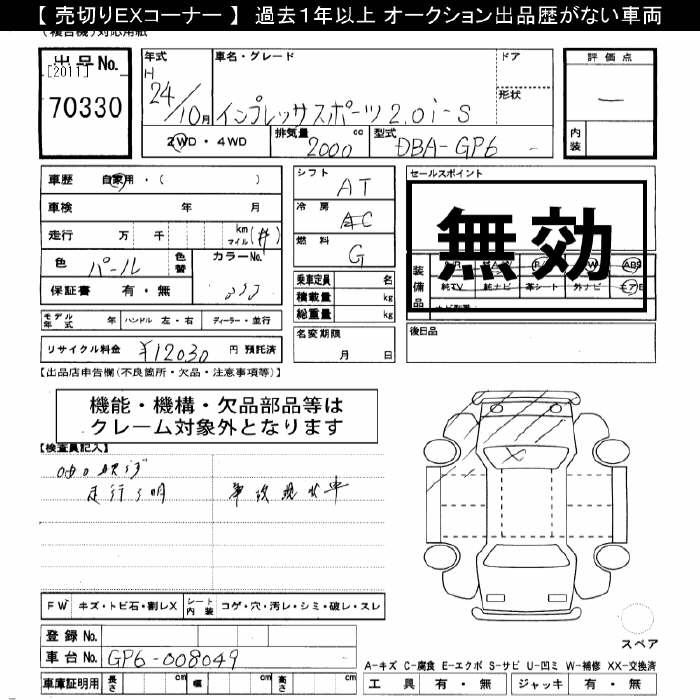 【 売切りEXコーナー 】 過去1年以上 オークション出品歴がない車両
(複合機)対応用紙
出品No.
[2011]
70330
年式
H
24/10月
車名・グレード
インプレッサスポーツ 2.0i-S
ドア
形状
2WD・4WD
排気量 cc
2000
型式
DBA-GP6
評価点
—
内装
車歴 自家用・( )
車検 年 月
走行 万 千 km マイル (#)
色 パール
色替
カラーNo.
保証書 有・無
モデル年式 年 ハンドル 左・右 ディーラー・並行
リサイクル料金 ¥12030 円 預託済
シフト
AT
冷房
AC
燃料
G
乗車定員 名
積載量 kg
総重量 kg
名変期限
月 日
セールスポイント
無効
装備品
ABS
純TV 純ナビ 革シート 外ナビ エアB
後日品
【出品店申告欄(不良箇所・欠品・注意事項等)】
機能・機構・欠品部品等は
クレーム対象外となります
【検査員記入】
走行不明
事故現状車
FW キズ・トビ石・割レX
シート内装 コゲ・穴・汚レ・シミ・破レ・スレ
登録No.
車台No. GP6-008049
車庫証明用 長さ 幅 高さ
スペア
A-キズ C-腐食 E-エクボ S-サビ U-凹ミ W-補修 XX-交換済
工具 有・無 ジャッキ 有・無